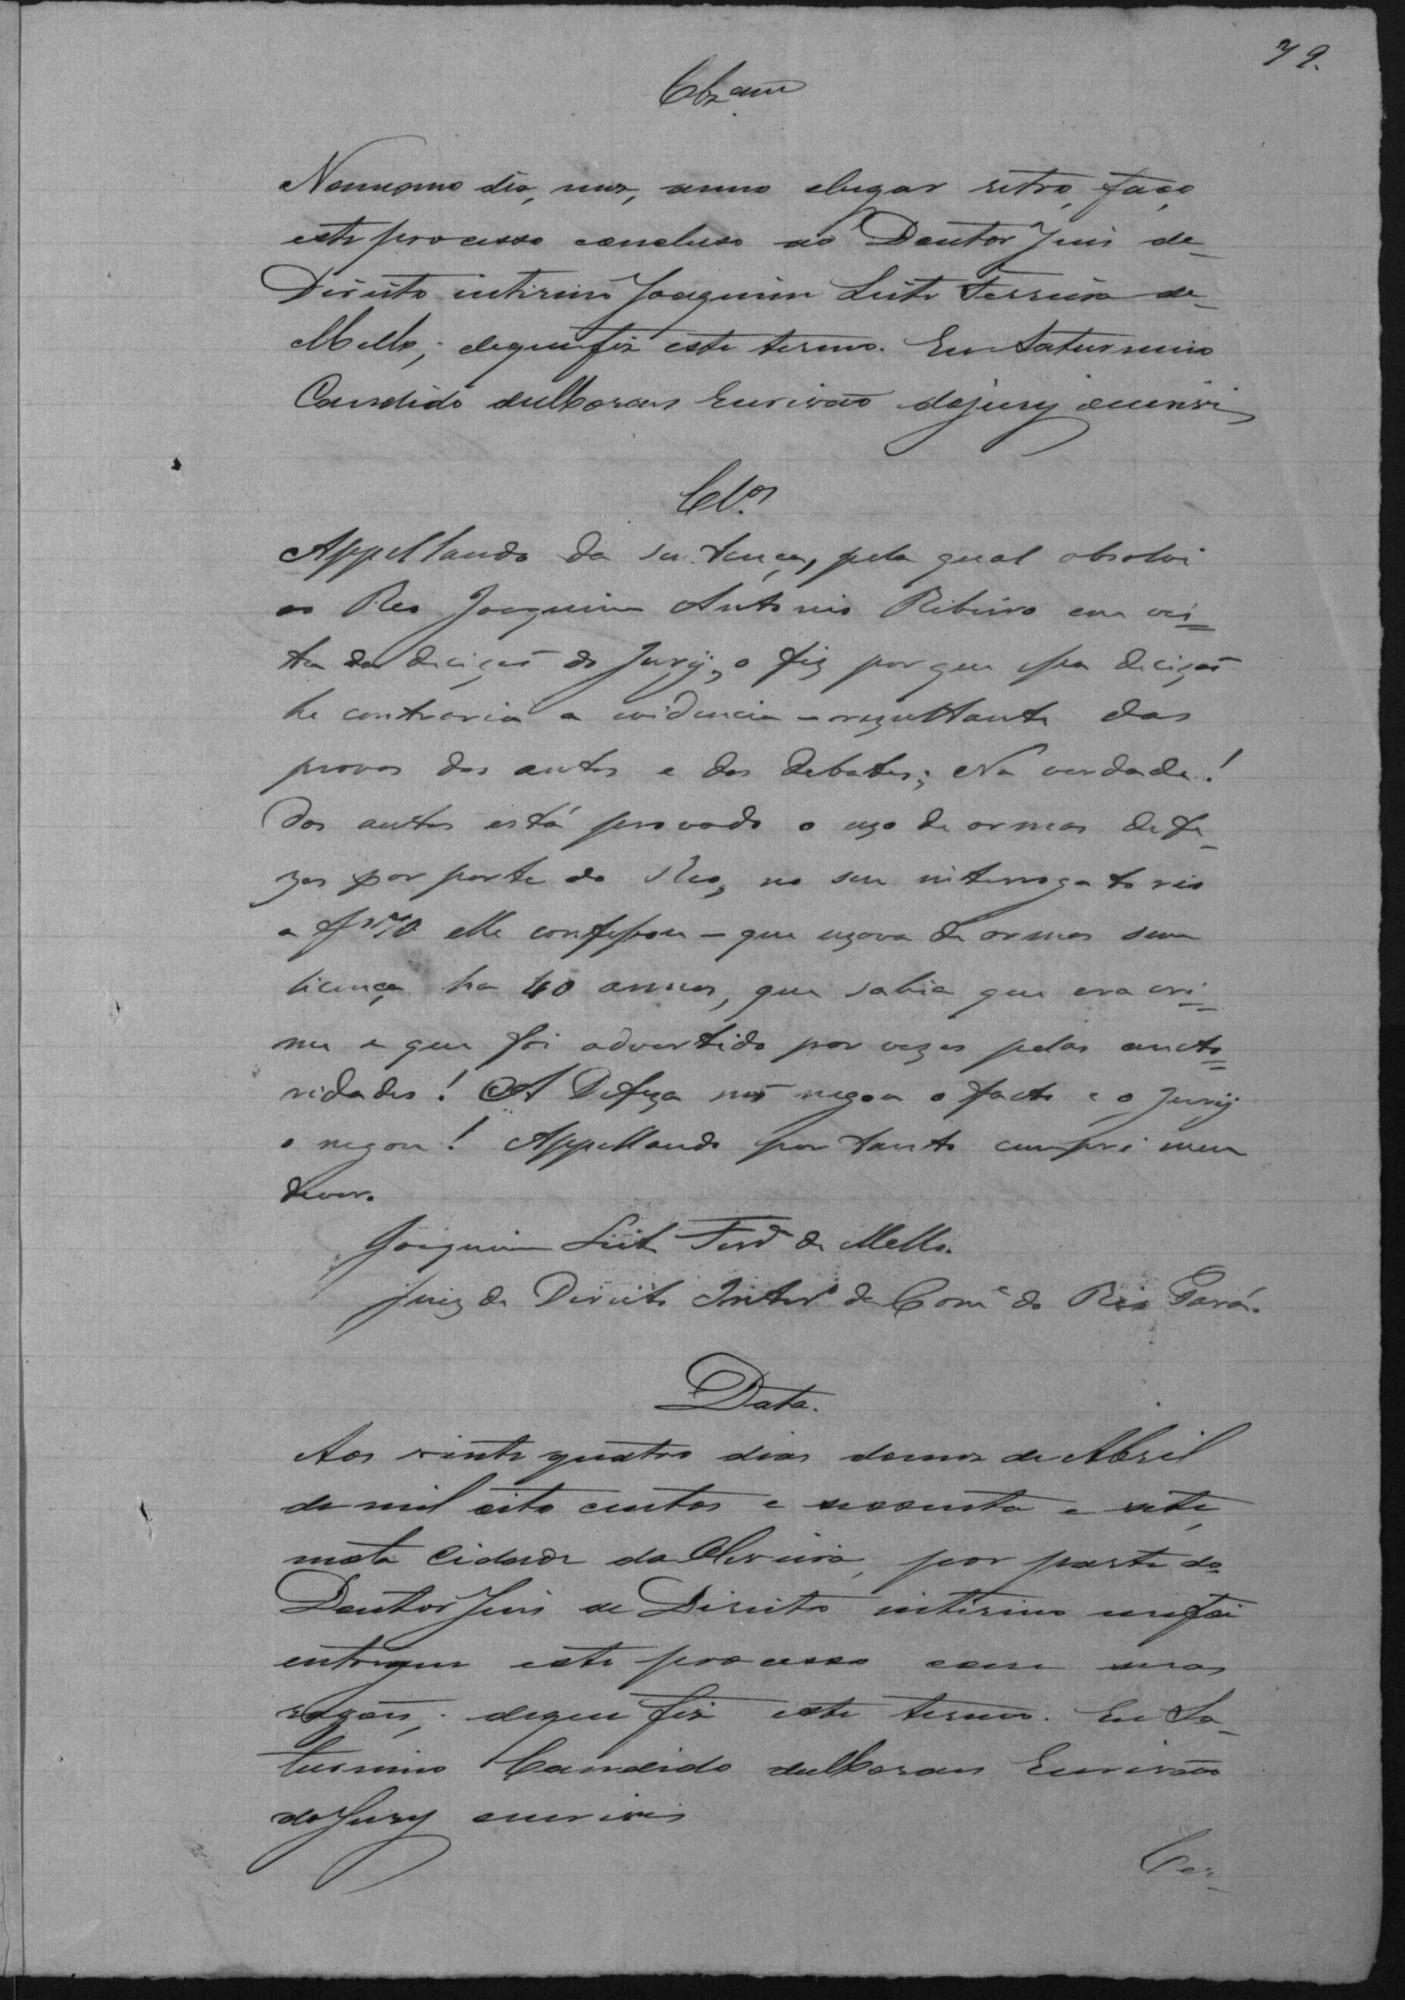 79.
Clzam
Nomesmo dia, mez, anno elugar retro, faço
este processo concluso ao Doutor Juis de
Direito interino Joaquim Leite Ferreira de
Mello; dequefiz este termo. Eu Saturnino
Candido deMoraes Escrivão dojury escrevi
Cl.os
Appellando da sentença, pela qual absolvi
ao Reo Joaquim Antonio Ribeiro em vis=
ta da decizaõ do Jury, o fiz porque essa decizaõ
he contraria a evidencia - rezultante das
provas dos autos e dos debates; Na verdade!
Dos autos está provado o uzo de armas defe_
zas por parte do Reo, no seu interrogatorio
a fs 70 elle confessou - que uzava de armas sem
licença ha 40 annos, que sabia que era cri=
me e que foi advertido por vezes pelas aucto=
ridades! A Defeza naõ negou o facto e o Jury
o negou! Appellando por tanto cumpri meu
dever.
Joaquim Leite Ferrª de Mello.
Juiz de Direito Interº da Comª do Rio Pará.
Data.
Aos vinte quatro dias domez de Abril
de mil oito centos e sessenta e sete,
nesta Cidade da Oliveira, por parte do
Doutor Juis de Direito interino mefoi
entregue este processo com suas
razoẽs; dequefiz este termo. Eu Sa_
turnino Candido deMoraes Escrivão
doJury escrevi
Cer_